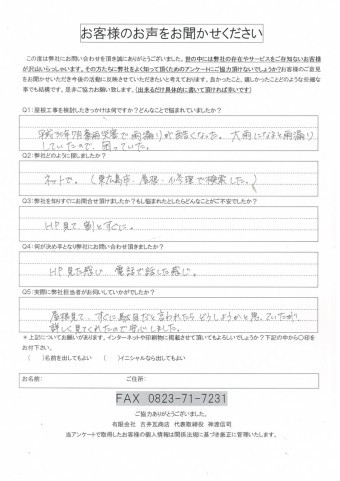 お客様のお声をお聞かせください
この度は弊社にお問い合わせを頂き誠にありがとうございました。世の中には弊社の存在やサービスをご存知ないお客様
が沢山いらっしゃいます。その方たちに弊社をよく知って頂くためのアンケートにご協力頂けないでしょうか?お客様のご意見
をお聞かせいただき今後の活動に反映させていただきたいと考えております。良かったこと、嬉しかったことどのような些細な
事でも結構です。是非ご協力お願い致します。(出来るだけ具体的に書いて頂ければ幸いです)
Q1:屋根工事を検討したきっかけは何ですか?どんなことで悩まれていましたか?
平成30年7月豪雨災害で雨漏りが酷くなった。大雨になると雨漏り
していたので、困っていた。
Q2:弊社をどのように探しましたか?
ネットで。(東広島市・屋根・修理で検索した。)
Q3:弊社を知りすぐにお問合せ頂けましたか?もし悩まれたとしたらどんなことがご不安でしたか?
HP見て、割とすぐに。
Q4:何が決め手となり弊社にお問い合わせ頂きましたか?
HP見た感じ、電話で話した感じ。
Q5:実際に弊社担当者がお伺いしていかがでしたか?
屋根見て、すぐに駄目だと言われたらどうしようかと思っていたが、
詳しく見てくれたので安心しました。
*上記についてお願いがあります。インターネットや印刷物に掲載させて頂いてもよろしいでしょうか?下記の中から〇印を
お付下さい。
( )名前を出してもよい ( )イニシャルなら出してもよい
お名前: ご住所:
FAX 0823-71-7231
ご協力ありがとうございました。
有限会社 古井瓦商店 代表取締役 信司
当アンケートで取得したお客様の個人情報は関係法規に基づき厳正に管理いたします。